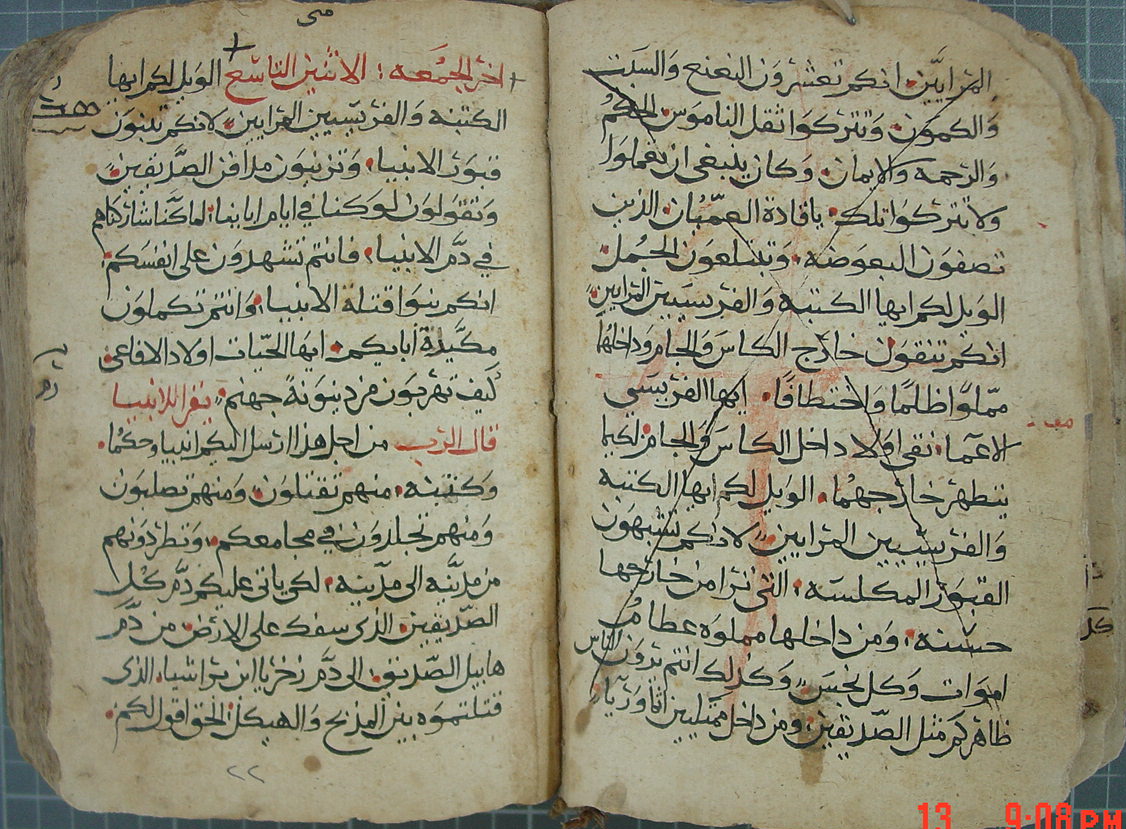 المرايين، انكم تعشرون النعنع والسبت
والكمون، وتتركوا ثقل الناموس الحكم
والرحمه والايمان، وكان ينبغي ان تعملوا
ولا تتركوا تلك، ياقادة العميان الذين
تصفون البعوضه، وتبتلعون الجمل
الويل لكم ايها الكتبه والفريسيين المرايين
انكم تنقون خارج الكاس والجام وداخلها
مملوًا ظلمًا واختطافًا، ايها الفريسي
الاعما، نقي اولا داخل الكاس والجام لكيما
يتطهر خارجهما، الويل لكم ايها الكتبه
والفريسيين المرايين، لانكم تشبهون
القبور المكلسه، التي ترا من خارجها
حسنه، ومن داخلها مملوه عظام
اموات وكل نجس، وكذلك انتم يرون الناس
ظاهركم مثل الصديقين، ومن داخل ممتليين اثمًا وريا،
اخر الجمعه : الاثنين التاسع الويل لكم ايها
الكتبه والفريسيين المرايين، لانكم تبنون
قبور الانبيا، وتزينون مدافن الصديقين،
وتقولون لو كنا في ايام اباينا، لما كنا شاركناهم
في دم الانبيا، فانتم تشهدون على انفسكم،
انكم بنوا قتلة الانبيا، وانتم تكملون
مكيدة أبايكم، ايها الحيات اولاد الافاعي
كيف تهربون من دينونة جهنم، يقرا للانبيا
قال الرب من اجل هذا ارسل اليكم انبيا وحكما،
وكتبه، منهم تقتلون، ومنهم تصلبون
ومنهم تجلدون في مجامعكم، وتطردونهم
من مدينه الى مدينه، لكي ياتي عليكم دم كل
الصديقين الذي سفك على الارض من دم
هابيل الصديق الى دم زخريا ابن براشيا، الذي
قتلتموه بين المذبح والهيكل الحق اقول لكم،
٢٢
13 9:08 PM